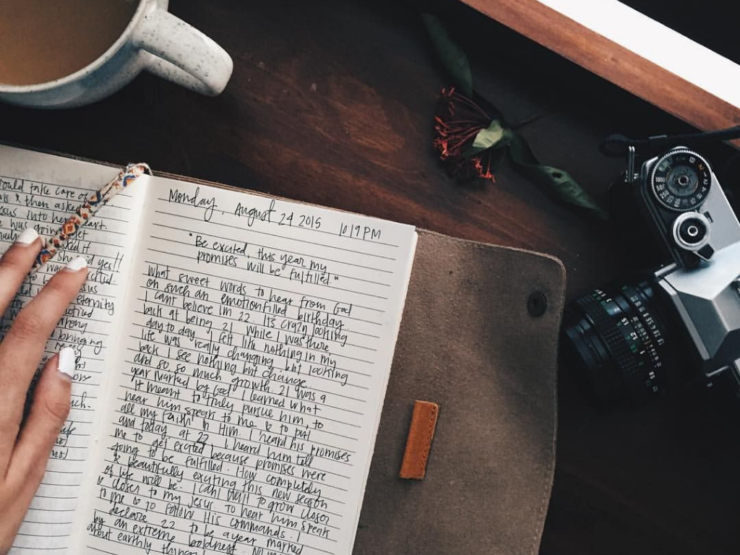 ould take care of
& then asked
Jesus into her heart
she was
it
said yes!!
was
excited
Jesus
eternity
bringing
Monday, August 24 2015 1019 PM
"Be excited, this year my
promises will be fulfilled."
What sweet words to hear from God
on such an emotionfilled birthday
I cant believe im 22. Its crazy looking
back at being 21. While I was there,
day to day, I felt like nothing in my
life was really changing, but looking
back I see nothing but change
and so so much growth. 21 was a
year marked by God. I learned what
it meant to truly pursue him, to
hear him speak to me, & to put
all my faith in Him. I heard his promises
and today, at 22, I heard him tell
me to get excited because promises were
going to be fulfilled. How completely
& beautifully exciting this new season
of life will be. I cant wait to grow closer
& closer to my Jesus, to hear him speak
to me & to follow His commands. I
declare 22 to be a year marked
by an extreme boldness. No more
about earthly things